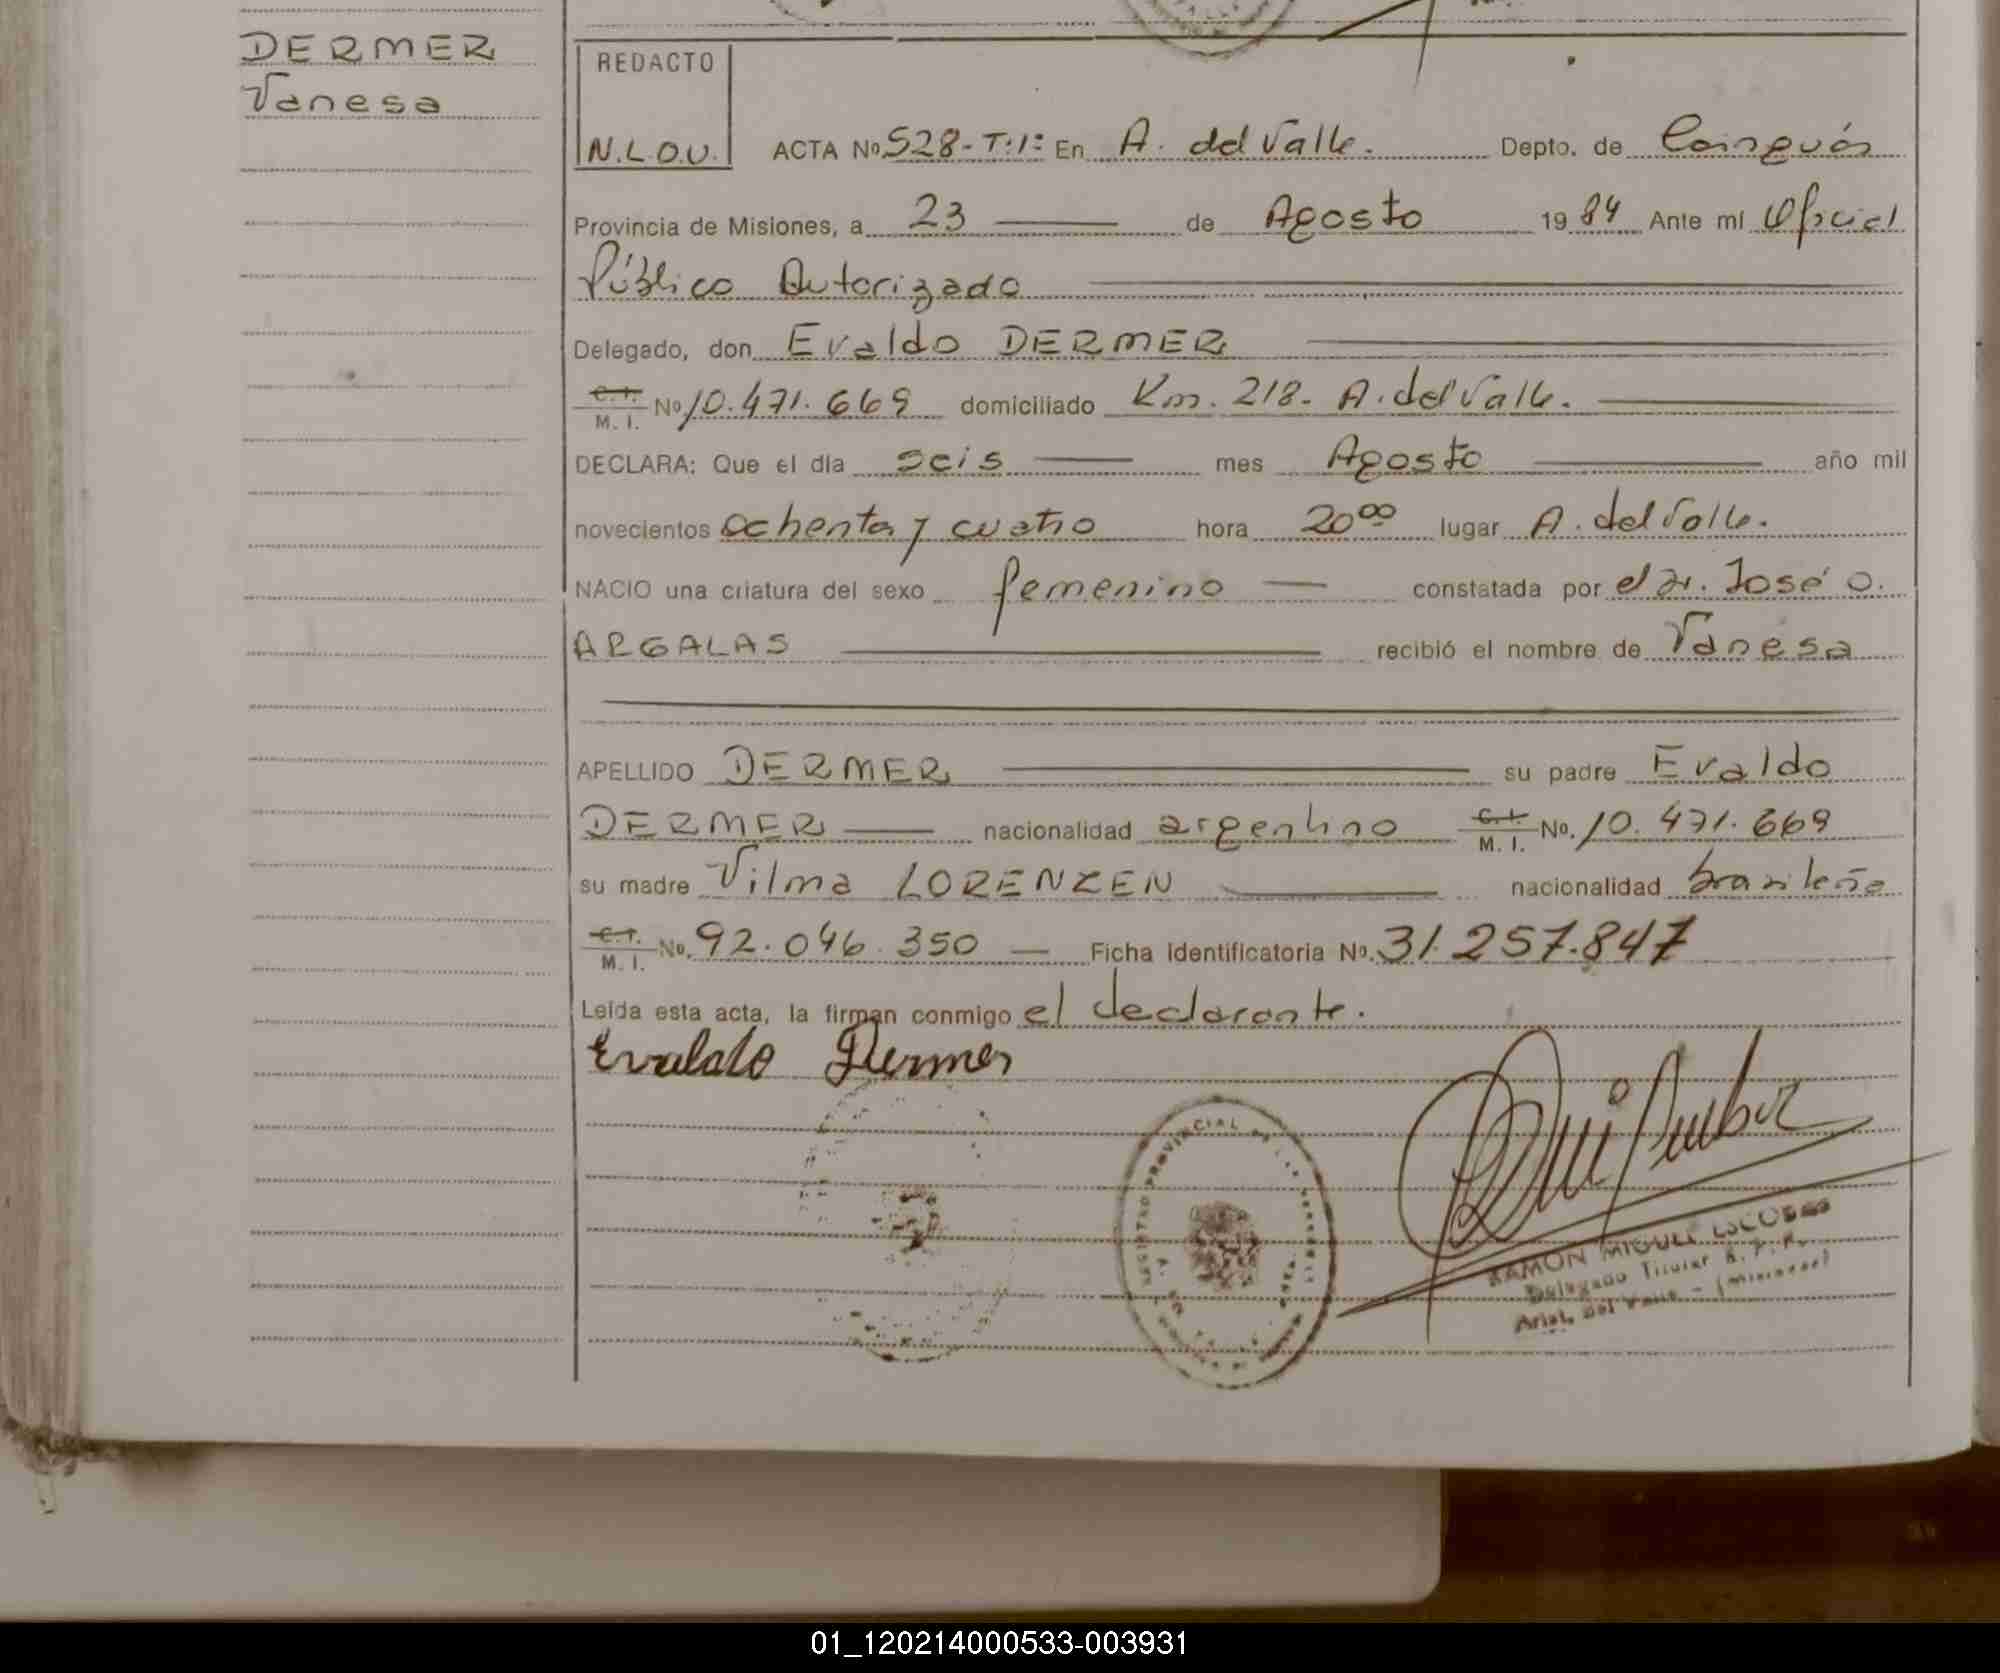 DERMER
Vanesa
REDACTO
N.L.O.U.
ACTA No 528-T:1º En A. del Valle. Depto. de Cainguás
Provincia de Misiones, a 23 de Agosto 1984 Ante mí Oficial
Público Autorizado
Delegado, don Evaldo DERMER
C.I. M.I. No 10.471.669 domiciliado Km. 218. A. del Valle.
DECLARA: Que el día seis mes Agosto año mil
novecientos ochenta y cuatro hora 20 00 lugar A. del Valle.
NACIO una criatura del sexo femenino constatada por el Dr. José O.
ARGALAS recibió el nombre de Vanesa
APELLIDO DERMER su padre Evaldo
DERMER nacionalidad argentino C.I. M.I. No. 10.471.669
su madre Vilma LORENZEN nacionalidad brasileña
C.I. M.I. No. 92.046.350 Ficha Identificatoria No. 31.257.847
Leída esta acta, la firman conmigo el declarante.
Evaldo Dermer
REGISTRO PROVINCIAL DE LAS PERSONAS
RAMON MIGUEL ESCOBAR
Delegado Titular R.P.P.
Arist. del Valle - (Misiones)
01_120214000533-003931